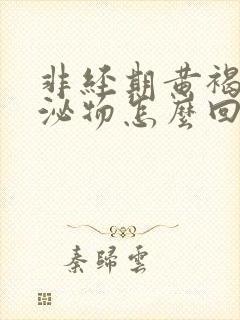 非經期黃褐
泌物怎麼回
秦歸雲